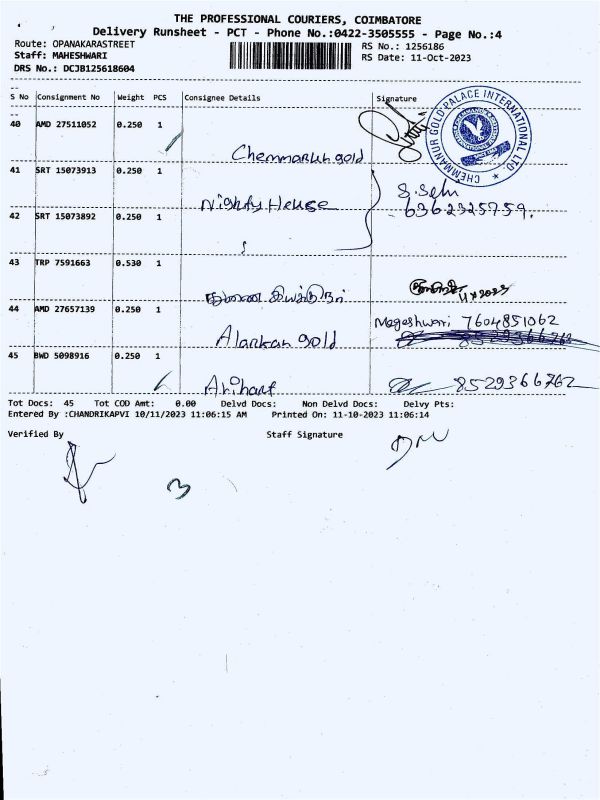 THE PROFESSIONAL COURIERS, COIMBATORE
Delivery Runsheet - PCT - Phone No.:0422-3505555 - Page No.:4
Route: OPANAKARASTREET
RS No.: 1256186
Staff: MAHESHWARI
RS Date: 11-Oct-2023
DRS No.: DCJB125618604
S No Consignment No Weight PCS Consignee Details Signature
40 AMD 27511052 0.250 1
Chemmanur gold
CHEMMANUR GOLD PALACE INTERNATIONAL LTD
41 SRT 15073913 0.250 1
Nighty House
6362325759.
42 SRT 15073892 0.250 1
43 TRP 7591663 0.530 1
44 AMD 27657139 0.250 1
Mageshwari 7604851062
gold
8529366762
45 BWD 5098916 0.250 1
Arihant
8529366762
Tot Docs: 45 Tot COD Amt: 0.00 Delvd Docs: Non Delvd Docs: Delvy Pts:
Entered By :CHANDRIKAPVI 10/11/2023 11:06:15 AM Printed On: 11-10-2023 11:06:14
Verified By Staff Signature